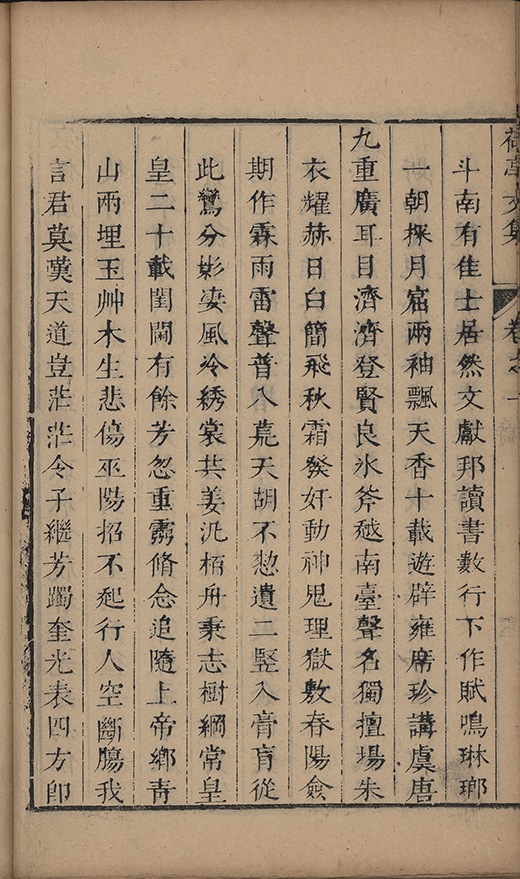 斗南有佳士居然文獻邦讀書數行下作賦鳴琳瑯
一朝探月窟兩袖飄天香十載遊辟雍席珍講虞唐
九重廣耳目濟濟登賢良氷斧越南臺聲名獨擅場朱
衣耀赫日白簡飛秋霜發奸動神鬼理獄敷春陽僉
期作霖雨雷聲普入荒天胡不憗遺二竪入膏肓從
此鸞分影凄風冷綉裳共姜汎栢舟秉志樹綱常皇
皇二十載閨閫有餘芳忽重霱脩念追隨上帝鄉靑
山兩埋玉艸木生悲傷巫陽招不起行人空斷膓我
言君莫嘆天道豈茫茫令子繼芳躅奎光表四方卽